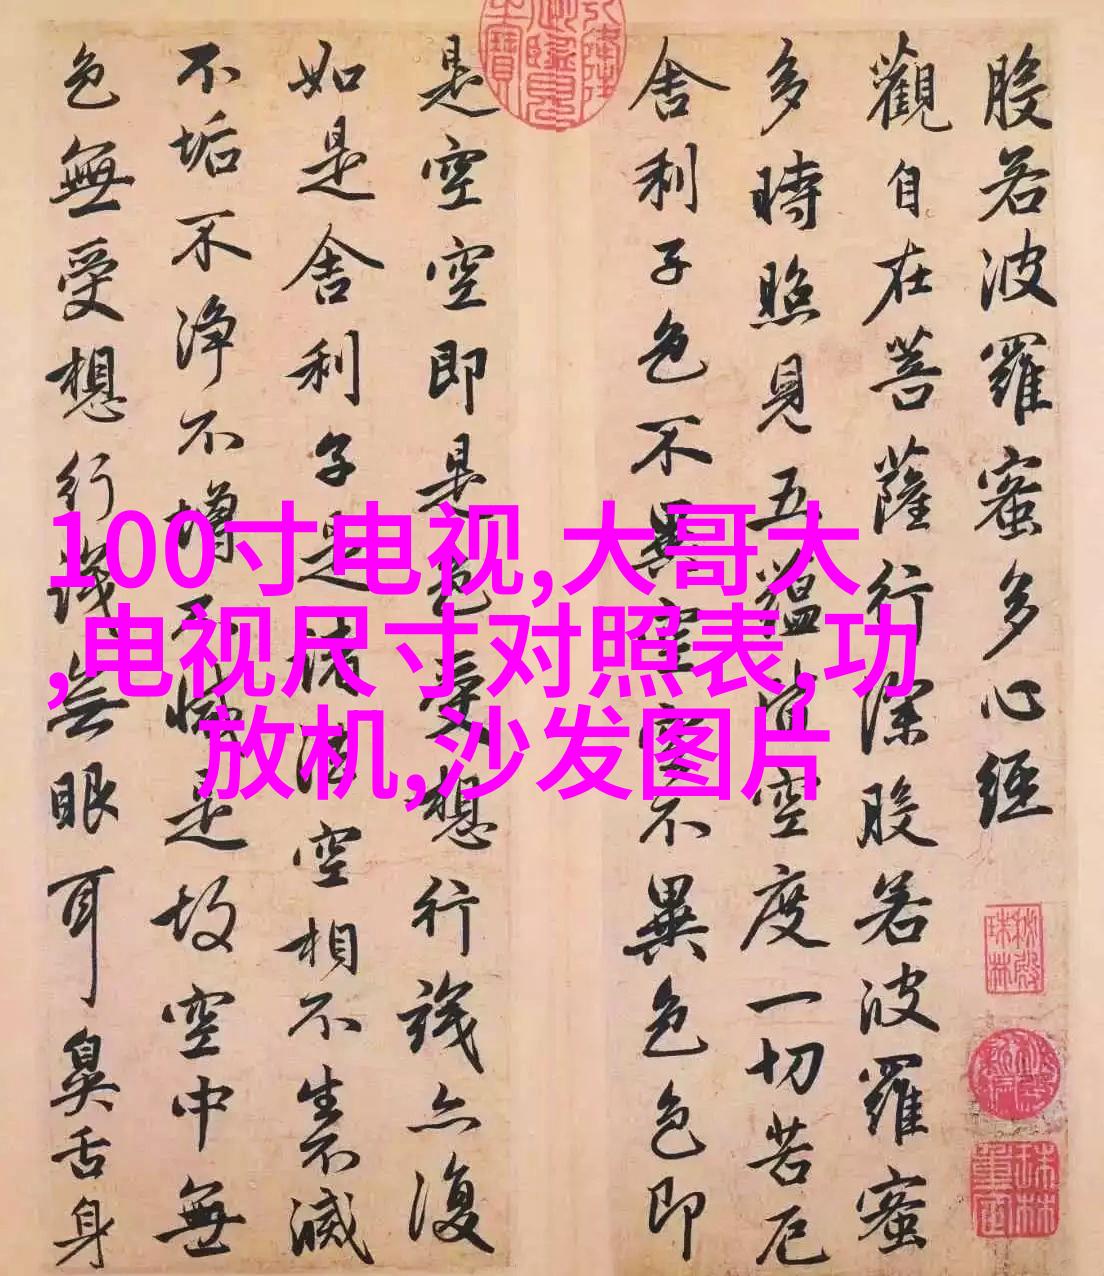 般若波羅蜜多心經
觀自在菩薩行深般若波羅蜜
多時照見五蘊皆空度一切苦厄
舍利子色不異空空不異色色即
是空空即是色受想行識亦復
如是舍利子是諸法空相不生不滅
不垢不淨不增不減是故空中無
色無受想行識無眼耳鼻舌身
100寸电视,大哥大
,电视尺寸对照表,功
放机,沙发图片
秘殿珠林